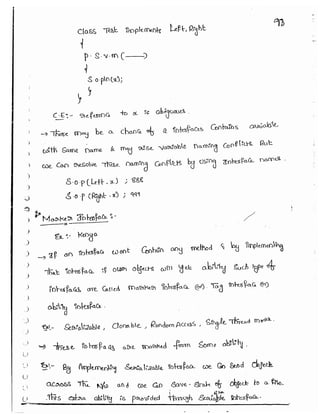 93
Class Test Implements Left, Right
{
P. S. v. m (——)
{
S. o. pln(x);
}
}
C.E:- reference to x is ambiguous.
→ There may be a chance of 2 interfaces contains variable
with same name & may raise variable naming conflicts But
we can resolve these naming conflicts by using Interface names.
S.o.p(Left.x) ; 888
S.o.p(Right.x) ; 999
Marker Interface :-
→ If an interface wont contain any method & by implementing
that interface if our objects will get ability such type of
interfaces are called marker interface (or) Tag interface (or)
ability interface.
Ex:- Serializable, Clonable, Random Access, Single Thread model.
→ these interfaces are marked from some ability.
Ex:- By implementing Serializable interface we can send objects
across the N/w and we can save state of object to a file.
This extra ability is provided through Serializable interface.